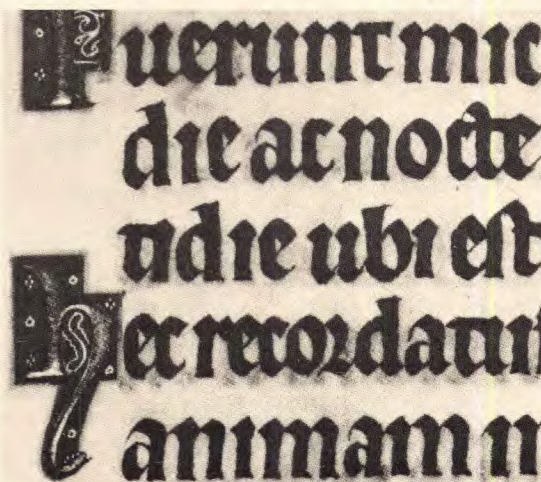 Fuerunt mic
die ac nocte
tidie ubi est
Hec recordatu
animam m